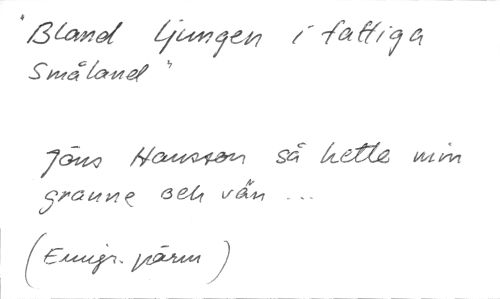 "Bland ljungen i fattiga
Småland"
Jöns Hansson så hette min
granne och vän ...
(Emigr. pärm)